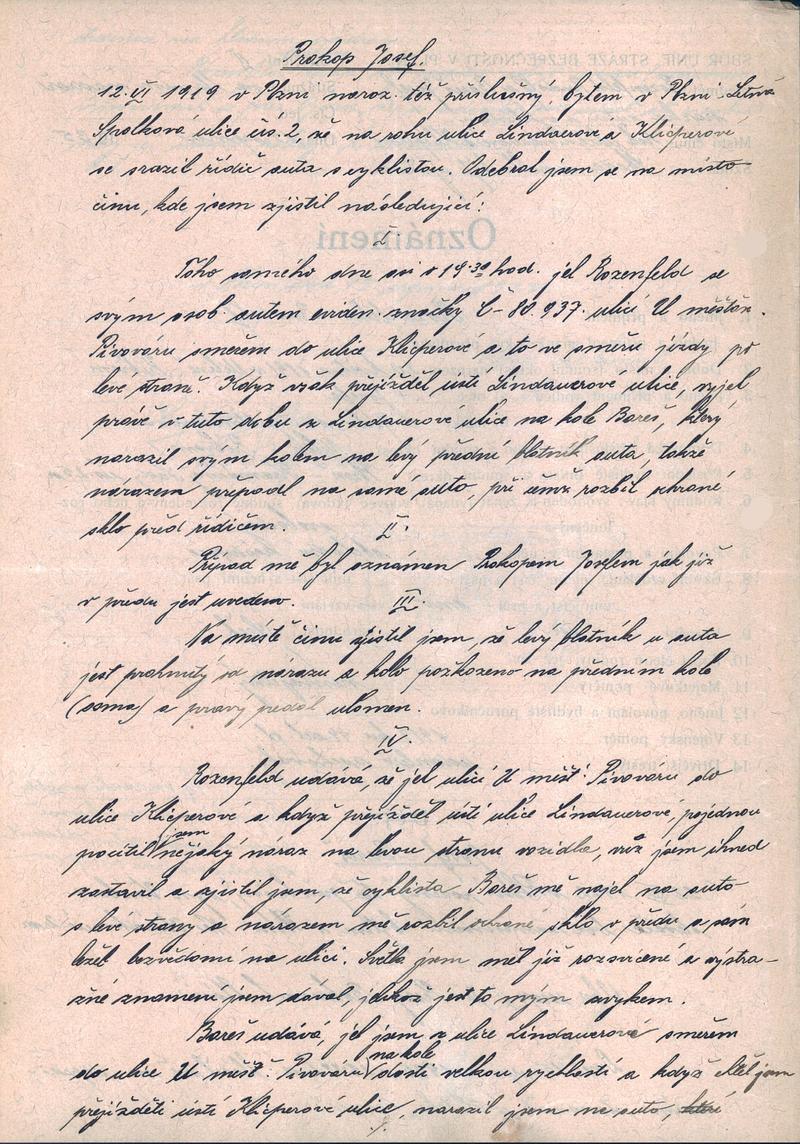 Prokop Josef.
12. VI 1919 v Plzni naroz. též příslušný, bytem v Plzni-Letná
Spolková ulice čís. 2, že na rohu ulice Lindauerové a Klicperové
se srazil řidič auta s cyklistou. Odebral jsem se na místo
činu, kde jsem zjistil následující:
Oznámení
I.
Toho samého dne asi v 19 30 hod. jel Rozenfeld se
svým osob. autem eviden. značky Č-80.937. ulicí U měšťan.
Pivováru směrem do ulice Klicperové a to ve směru jízdy po
levé straně. Když však přejížděl ústí Lindauerové ulice, vyjel
právě v tuto dobu z Lindauerové ulice na kole Bareš, který
narazil svým kolem na levý přední blatník auta, takže
nárazem přepadl na samé auto, při čemž rozbil ochrané
sklo před řidičem.
II.
Případ mě byl oznámen Prokopem Josefem jak již
v předu jest uvedeno.
III.
Na místě činu zjistil jsem, že levý blatník u auta
jest prohnutý od nárazu a kolo poškozeno na předním kole
(osma) a pravý pedál ulomen.
IV.
Rozenfeld udává, že jel ulicí U měšť. Pivováru do
ulice Klicperové a když přejížděl ústí ulice Lindauerové, pojednou
pocítil jsem nějaký náraz na levou stranu vozidla, vůz jsem ihned
zastavil a zjistil jsem, že cyklista Bareš mě najel na auto
s levé strany a nárazem mě rozbil ochrané sklo v předu a sám
ležel bezvědomí na ulici. Světla jsem měl již rozsvícené a výstra-
žné znamení jsem dával, jelikož jest to mým zvykem.
Bareš udává, jel jsem z ulice Lindauerové směrem
do ulice U měšť. Pivováru na kole dosti velkou rychlostí a když chtěl jsem
přejížděti ústí Klicperové ulice, narazil jsem na auto, které